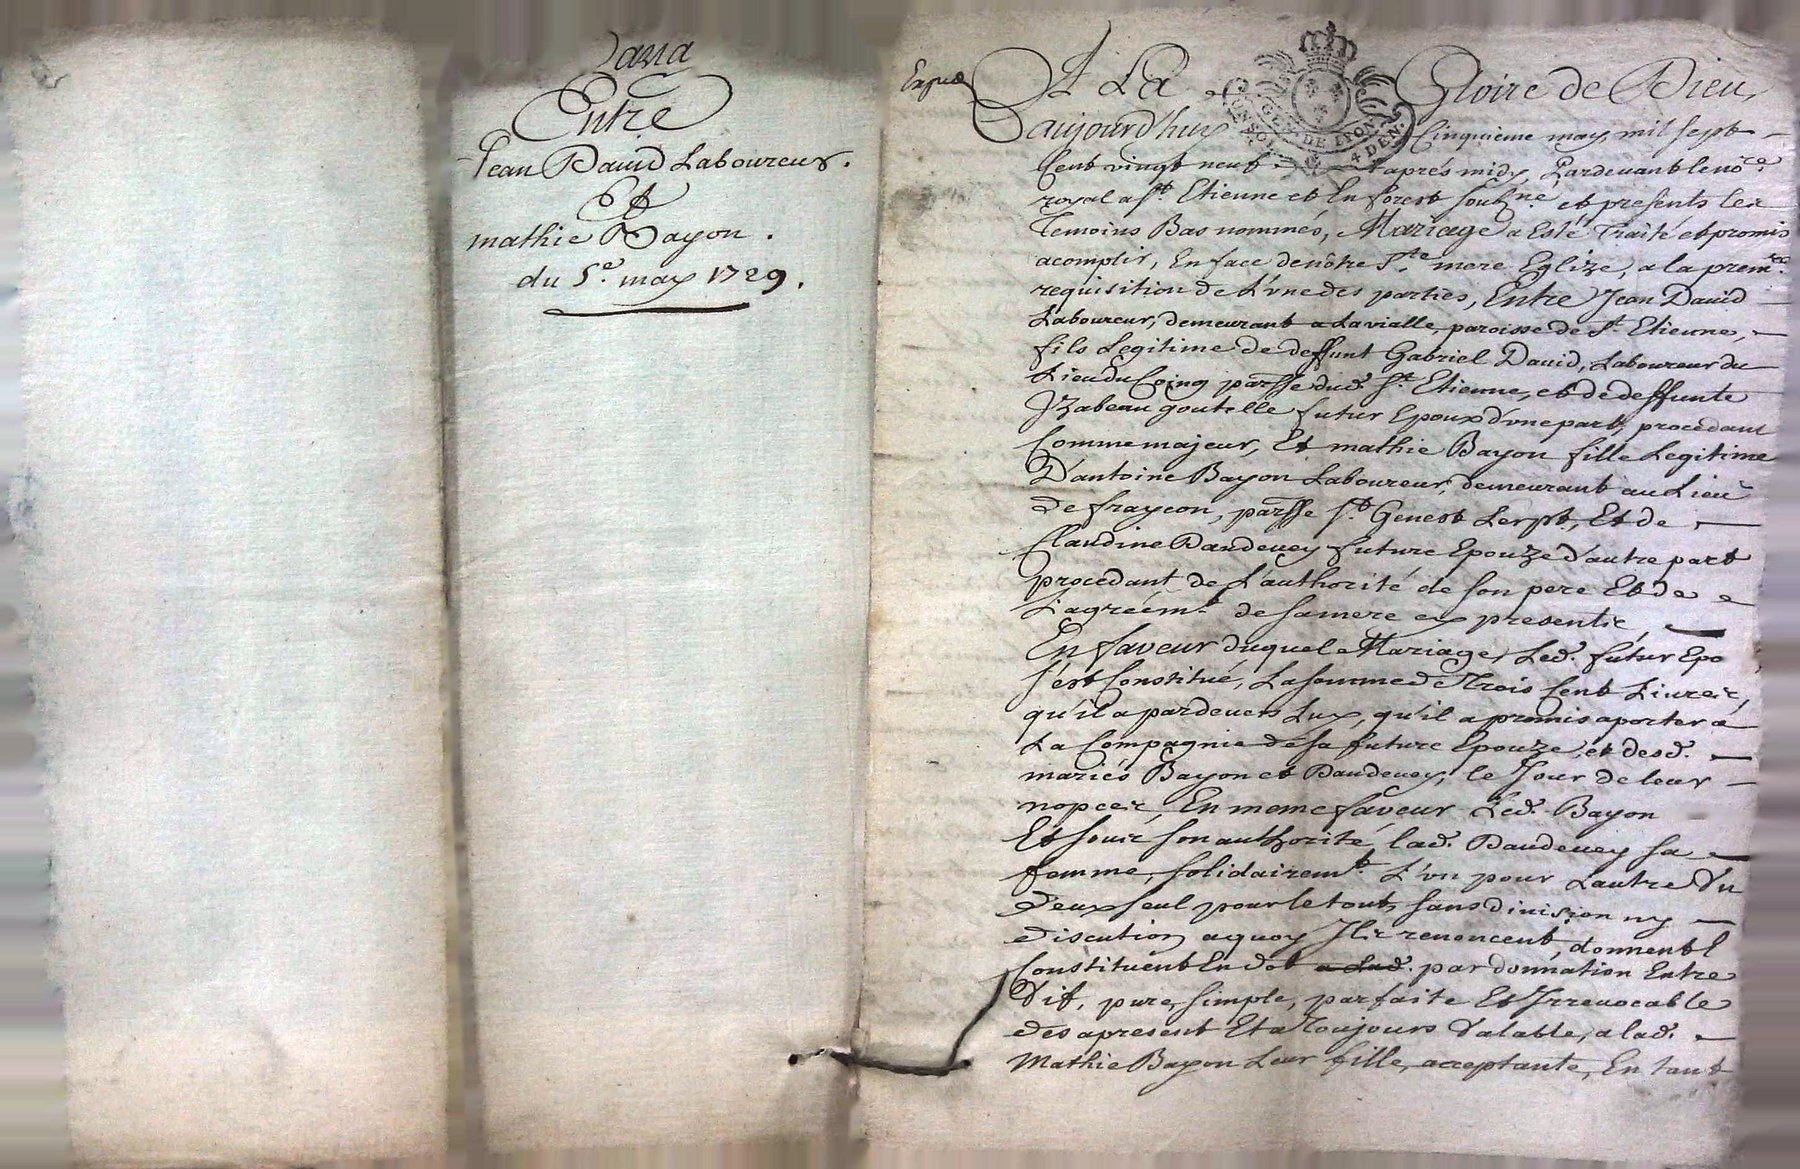 Entre
Jean Dauid Laboureur.
Et
mathie Bayon.
du 5e. may 1729.
A La Gloire de Dieu,
aujourd'huy Cinquieme may, mil sept
Cent vingt neuf aprés midy, Pardeuant le no.re
royal a St. Etienne et En forest souss.né, et presents les
Temoins Bas nommés, Mariage a Esté Traité et promis
acomplir, En face de nôtre Ste. mere Eglize, a la prem.re
requisition de L'vne des parties, Entre Jean Dauid
Laboureur, demeurant a Lavialle, paroisse de St. Etienne,
fils Legitime de deffunt Gabriel Dauid, Laboureur du
Lieu du Coing parsse dud. St. Etienne, et de deffunte
Jzabeau goutelle futur Epoux d'vne part, procedant
Comme majeur, Et mathie Bayon fille Legitime
D'antoine Bayon Laboureur, demeurant au Lieu
de fraycon, parsse St. Genest Lerpt, Et de
Claudine Daudeuey future Epouze d'autre part
procedant de L'authorité de son pere Et de
L'agréemt. de sa mere ey presentie,
En faveur duquel Mariage, Led. futur Epo
s'est Constitué, La somme de Trois Cent Liures,
qu'il a pardeuers Luy, qu'il a promis aporter a
La Compagnie de sa future Epouze, et desd.
mariés Bayon et Daudeuey, le Jour de leur
nopces, En meme faveur Led. Bayon
Et sous son authorité, lad. Daudeuey sa
femme, solidairemt. L'vn pour Lautre d'n
d'eux seul pour le tout, sans diuision ny
discution, a quoy Jls renoncent, donnent
Constituént En dot a Lad. par donnation Entre
Vif, pure, simple, parfaite Et Jrreuocable
des apresent Et a Toujours valable, a lad.
Mathie Bayon Leur fille, acceptante, En tant